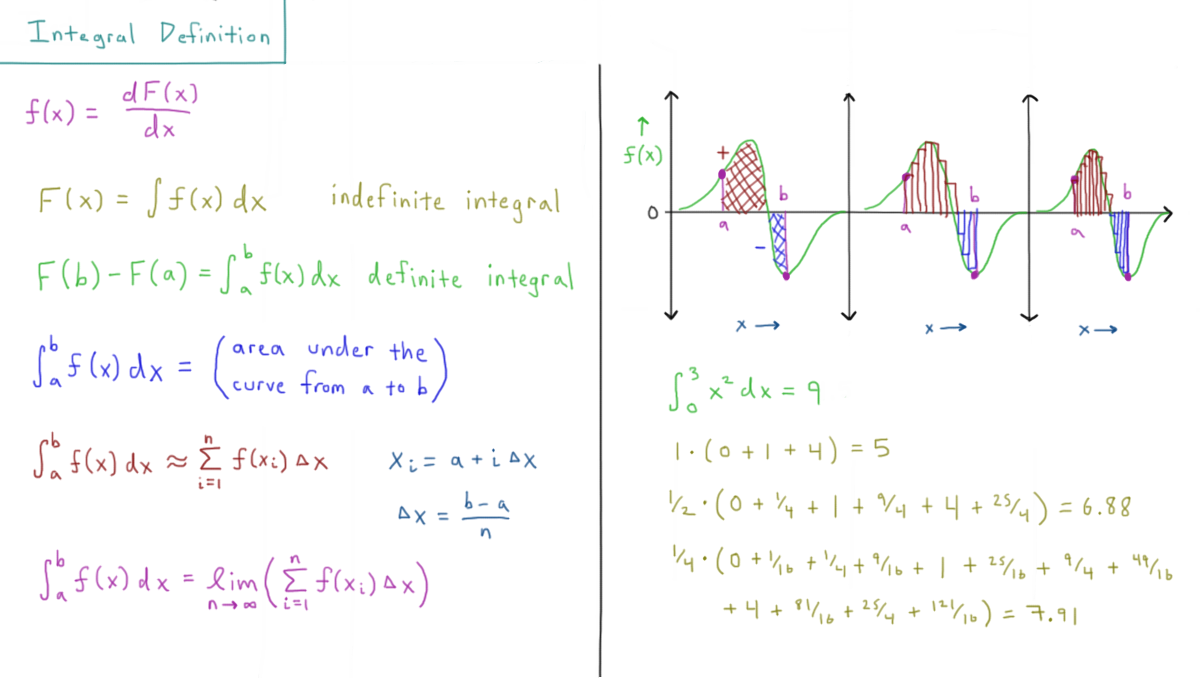 Integral Definition
f(x) = dF(x)/dx
F(x) = ∫ f(x) dx indefinite integral
F(b) - F(a) = ∫_a^b f(x) dx definite integral
∫_a^b f(x) dx = (area under the
curve from a to b)
∫_a^b f(x) dx ≈ Σ_{i=1}^n f(x_i) Δx x_i = a + i Δx
Δx = b-a/n
∫_a^b f(x) dx = lim_{n→∞} (Σ_{i=1}^n f(x_i) Δx)
↑
f(x)
0
+ a b -
a b
a b
x → x → x →
∫_0^3 x² dx = 9
1·(0 + 1 + 4) = 5
1/2·(0 + 1/4 + 1 + 9/4 + 4 + 25/4) = 6.88
1/4·(0 + 1/16 + 1/4 + 9/16 + 1 + 25/16 + 9/4 + 49/16
+ 4 + 81/16 + 25/4 + 121/16) = 7.91